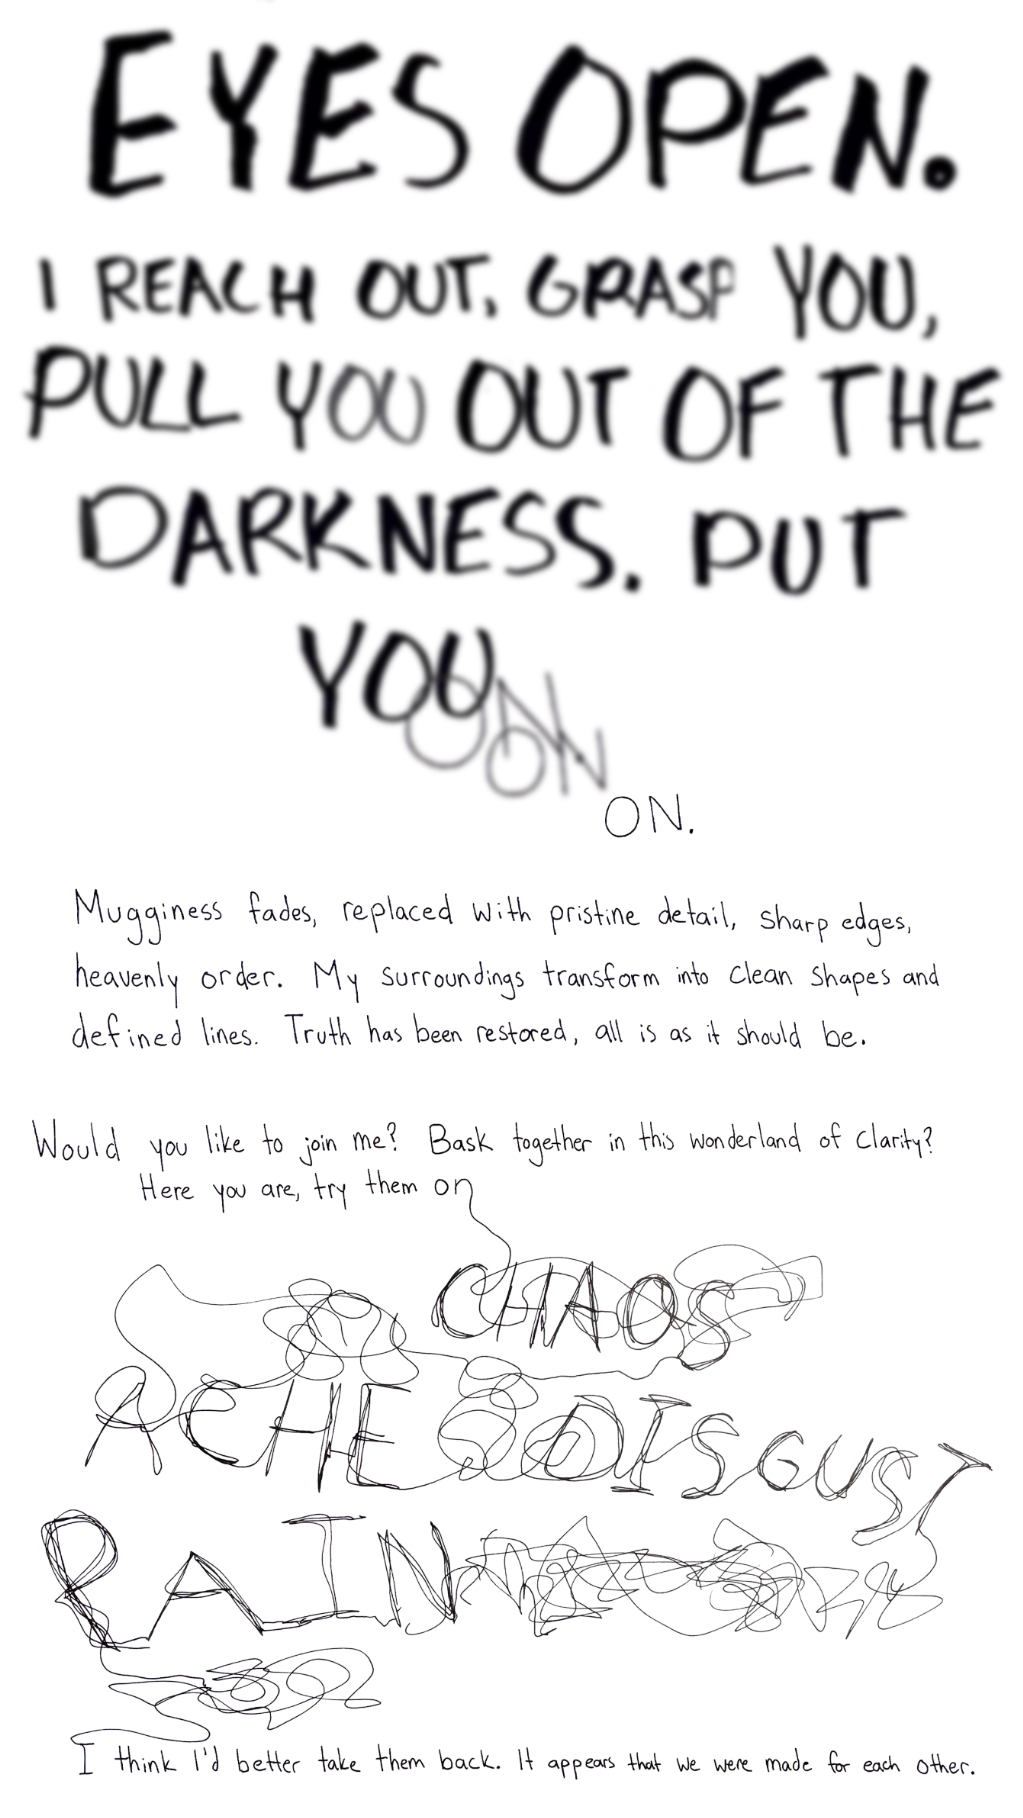 EYES OPEN.
I REACH OUT, GRASP YOU,
PULL YOU OUT OF THE
DARKNESS. PUT
YOU
ON
ON.
Mugginess fades, replaced with pristine detail, sharp edges,
heavenly order. My surroundings transform into clean shapes and
defined lines. Truth has been restored, all is as it should be.
Would you like to join me? Bask together in this wonderland of clarity?
Here you are, try them on
CHAOS
ACHE DISGUST
PAIN
I think I'd better take them back. It appears that we were made for each other.